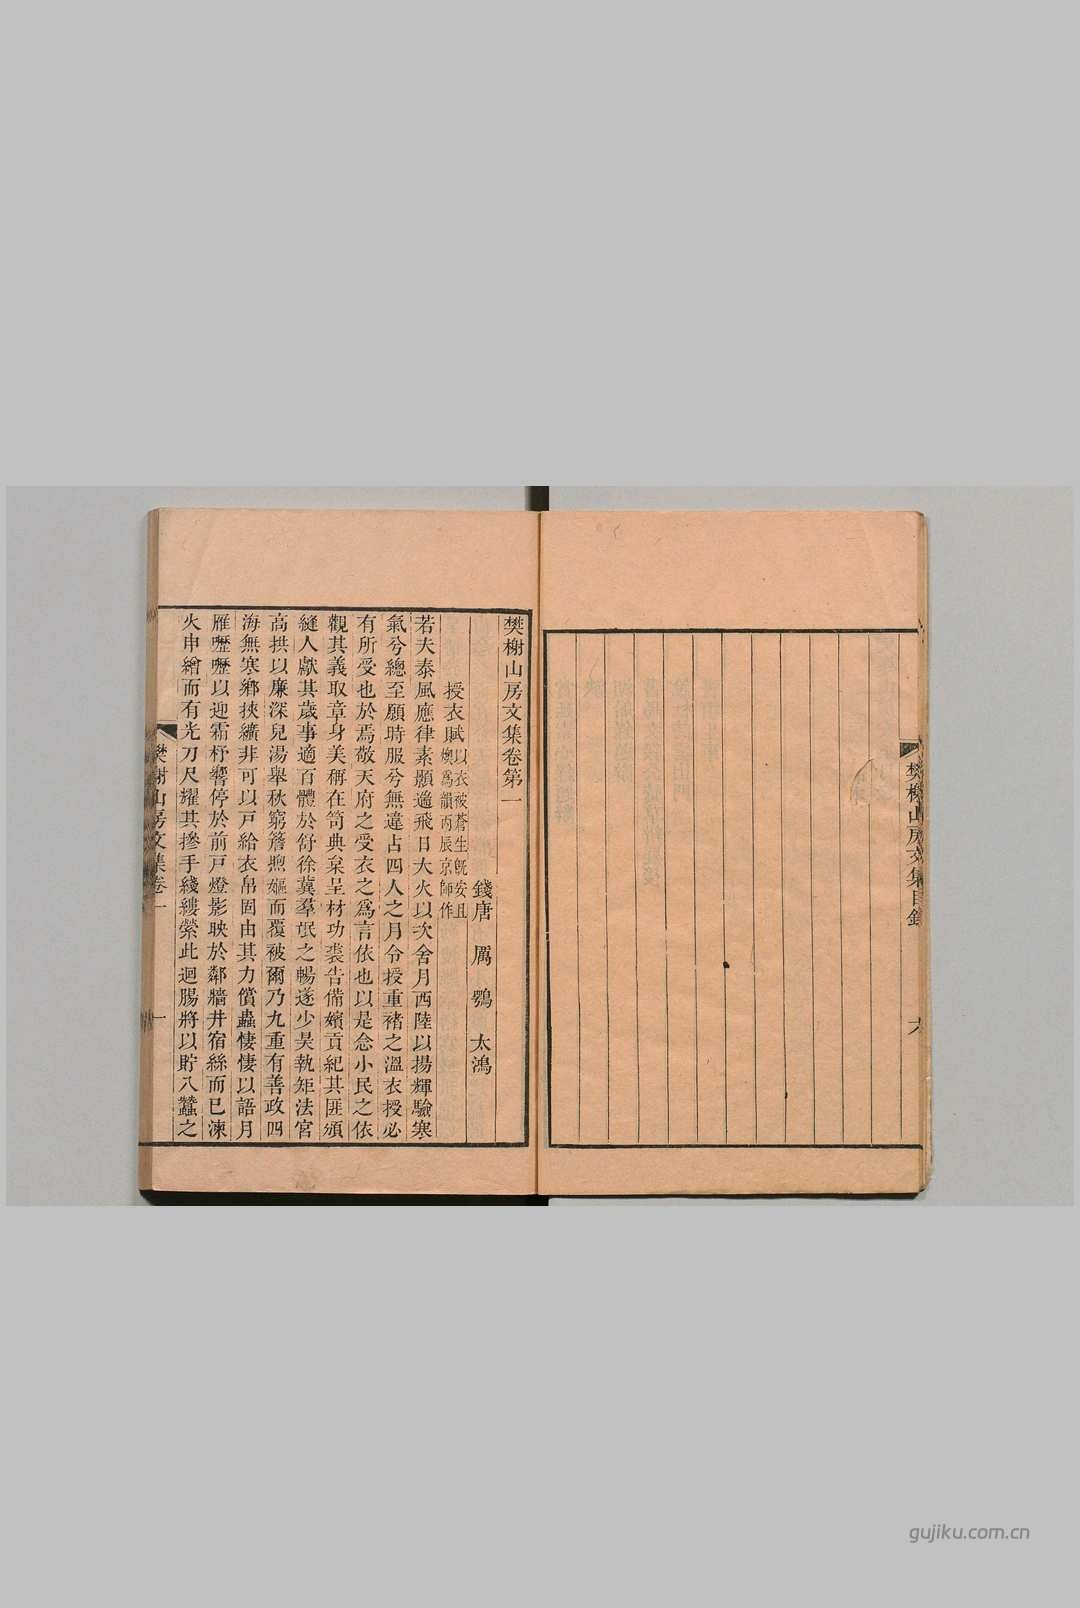 樊榭山房文集目錄
六
樊榭山房文集卷第一
錢唐 厲鶚 太鴻
授衣賦以衣被蒼生旣安且
燠爲韻丙辰京師作
若夫泰風應律素顥適飛日大火以次舍月西陸以揚輝驗寒
氣兮總至願時服兮無違占四人之月令授重褚之溫衣授必
有所受也於焉敬天府之受衣之爲言依也以是念小民之依
觀其義取章身美稱在笥典枲呈材功裘告備嬪貢紀其匪頒
縫人獻其歲事適百體於舒徐冀羣氓之暢遂少昊執矩法官
高拱以廉深兒湯舉秋窮簷煦嫗而覆被爾乃九重有善政四
海無寒鄉挾纊非可以戸給衣帛固由其力償蟲悽悽以語月
雁嚦嚦以迎霜杼響停於前戸燈影映於鄰牆井宿絲而已湅
火申繪而有光刀尺耀其摻手綫縷縈此迴腸將以貯八蠶之
樊榭山房文集卷一
一
gujiku.com.cn